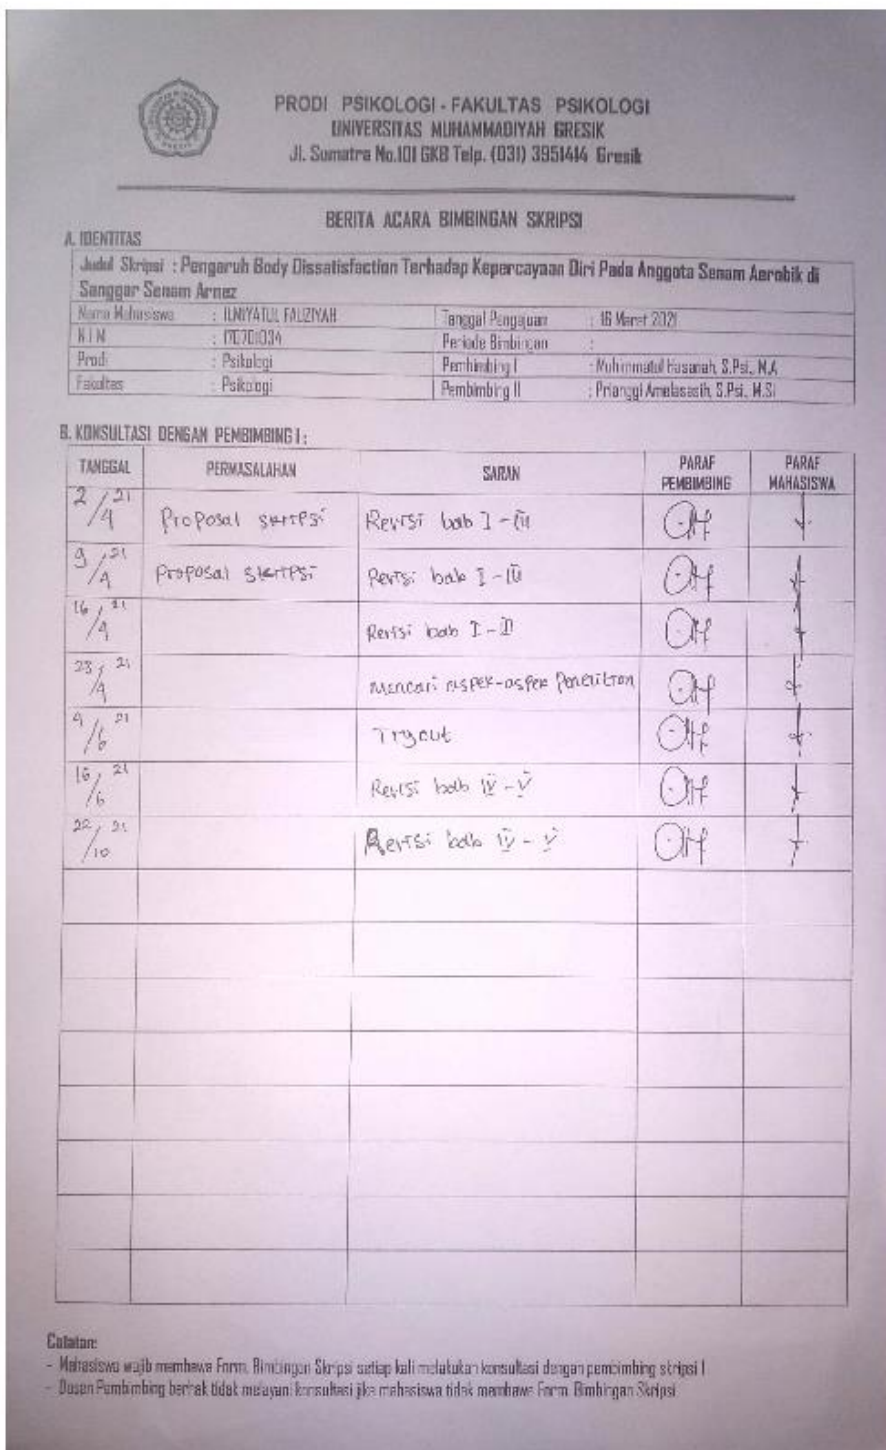 PRODI PSIKOLOGI - FAKULTAS PSIKOLOGI
UNIVERSITAS MUHAMMADIYAH GRESIK
Jl. Sumatra No.101 GKB Telp. (031) 3951414 Gresik
BERITA ACARA BIMBINGAN SKRIPSI
A. IDENTITAS
Judul Skripsi : Pengaruh Body Dissatisfaction Terhadap Kepercayaan Diri Pada Anggota Senam Aerobik di
Sanggar Senam Arnez
Nama Mahasiswa : ILMIYATUL FAUZIYAH Tanggal Pengajuan : 16 Maret 2021
N I M : 170701034 Periode Bimbingan :
Prodi : Psikologi Pembimbing I : Muhimmatul Hasanah, S.Psi., M.A
Fakultas : Psikologi Pembimbing II : Prianggi Amelasasih, S.Psi., M.Si
B. KONSULTASI DENGAN PEMBIMBING I :
TANGGAL PERMASALAHAN SARAN PARAF PEMBIMBING PARAF MAHASISWA
2/4 21 Proposal skripsi Revisi bab I - III
9/4 21 Proposal skripsi Revisi bab I - III
16/4 21 Revisi bab I - II
23/4 21 Mencari aspek-aspek penelitian
4/6 21 Tryout
16/6 21 Revisi bab IV - V
22/10 21 Revisi bab IV - V
Catatan:
- Mahasiswa wajib membawa Form. Bimbingan Skripsi setiap kali melakukan konsultasi dengan pembimbing skripsi I
- Dosen Pembimbing berhak tidak melayani konsultasi jika mahasiswa tidak membawa Form. Bimbingan Skripsi